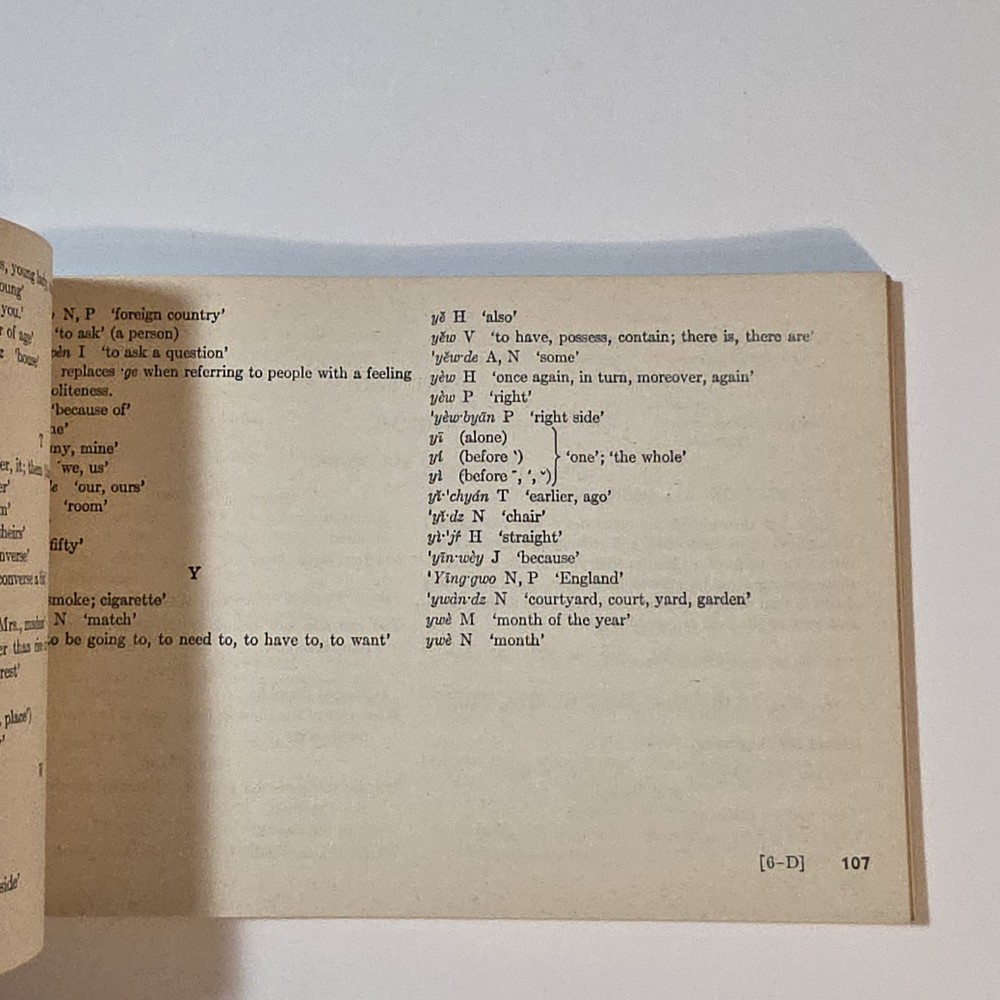 s, young lady,
oung'
you.'
r of age'
z 'house'
?
er, it; them
er'
m'
heirs'
nverse'
converse a
Mrs., madam'
er than
rest'
, place')
side'
N, P 'foreign country'
'to ask' (a person)
I 'to ask a question'
replaces ·ge when referring to people with a feeling
oliteness.
'because of'
ne'
my, mine'
'we, us'
'our, ours'
'room'
fifty'
Y
smoke; cigarette'
N 'match'
to be going to, to need to, to have to, to want'
yě H 'also'
yěw V 'to have, possess, contain; there is, there are'
'yěw·de A, N 'some'
yèw H 'once again, in turn, moreover, again'
yèw P 'right'
'yèw·byān P 'right side'
yī (alone)
yí (before `)
yì (before ¯, ´, ˇ)
'one'; 'the whole'
yǐ·'chyán T 'earlier, ago'
'yǐ·dz N 'chair'
yì·'jŕ H 'straight'
'yīn·wèy J 'because'
'Yīng·gwo N, P 'England'
'ywàn·dz N 'courtyard, court, yard, garden'
ywè M 'month of the year'
ywè N 'month'
[6–D] 107